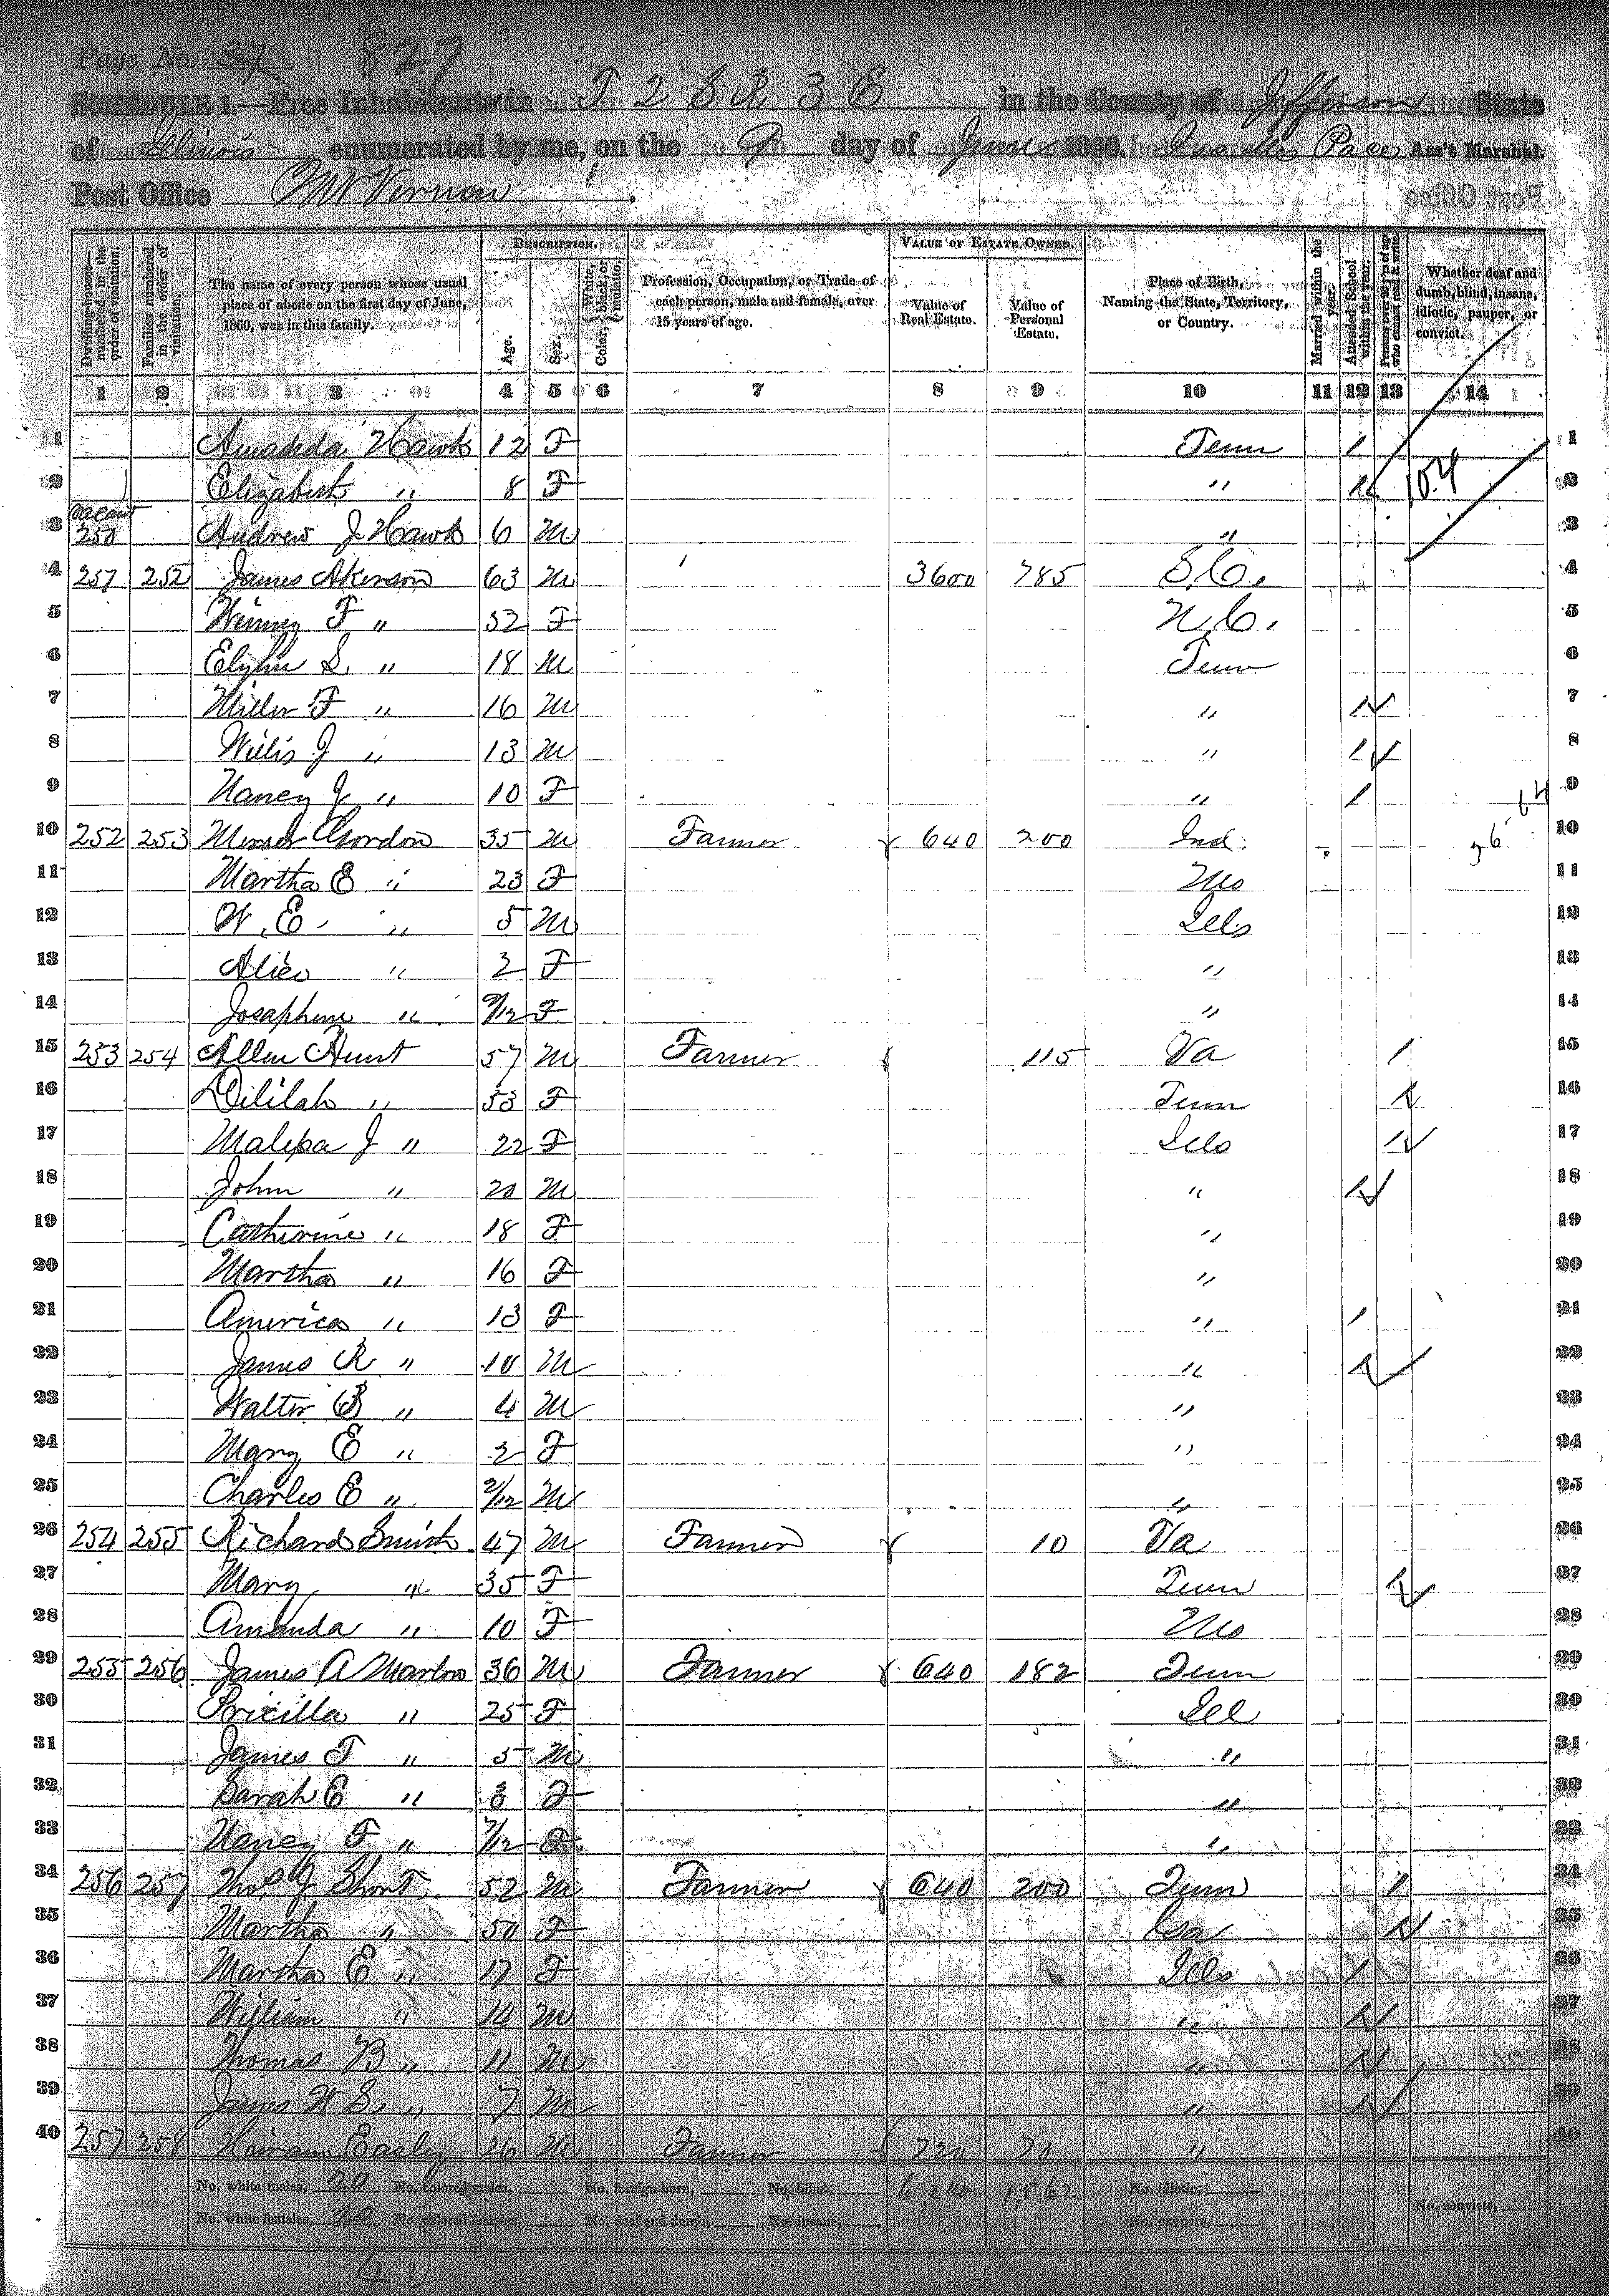 Page No. 37 827
SCHEDULE 1.—Free Inhabitants in T 2 S R 3 E in the County of Jefferson State
of Illinois enumerated by me, on the 9 day of June 1860. Pace Ass't Marshal.
Post Office Mt Vernon
Dwelling-houses—numbered in the order of visitation.
Families numbered in the order of visitation.
The name of every person whose usual place of abode on the first day of June, 1860, was in this family.
DESCRIPTION.
Age.
Sex.
Color, White, black, or mulatto.
Profession, Occupation, or Trade of each person, male and female, over 15 years of age.
VALUE OF ESTATE OWNED.
Value of Real Estate.
Value of Personal Estate.
Place of Birth, Naming the State, Territory, or Country.
Married within the year.
Attended School within the year.
Persons over 20 y'rs of age who cannot read & write.
Whether deaf and dumb, blind, insane, idiotic, pauper, or convict.
1 2 3 4 5 6 7 8 9 10 11 12 13 14
1 Hawks 12 F Tenn 1 1
2 Elizabeth " 8 F " 1 104 2
vacant
3 250 Andrew J Hawks 6 M " 3
4 251 252 James Akerson 63 M 3600 785 S.C. 4
5 Winney F " 52 F N.C. 5
6 S. " 18 M Tenn 6
7 Miller F " 16 M " 1 7
8 Willis J " 13 M " 1 8
9 Nancy J " 10 F " 1 9
10 252 253 Gordon 35 M Farmer 640 200 Ind. 10
11 Martha E " 23 F Mo 11
12 W. E. " 5 M Ills 12
13 Alice " 2 F " 13
14 Josephine " 9/12 F " 14
15 253 254 Allen Hunt 57 M Farmer 115 Va 1 15
16 Dililah " 53 F Tenn 1 16
17 Malissa J " 22 F Ills 1 17
18 John " 20 M " 1 18
19 Catherine " 18 F " 19
20 Martha " 16 F " 20
21 America " 13 F " 1 21
22 James R " 10 M " 1 22
23 Walter B " 4 M " 23
24 Mary E " 2 F " 24
25 Charles E " 2/12 M " 25
26 254 255 Richard Smith 47 M Farmer 10 Va 26
27 Mary " 35 F Tenn 1 27
28 Amanda " 10 F Mo 28
29 255 256 James A Marlow 36 M Farmer 640 182 Tenn 29
30 Pricilla " 25 F Ill 30
31 James T " 5 M " 31
32 Sarah E " 3 F " 32
33 Nancy F " 7/12 F " 33
34 256 257 Thos. J Short 52 M Farmer 640 200 Tenn 1 34
35 Martha " 50 F Ga 1 35
36 Martha E " 17 F Ills 1 36
37 William " 14 M " 1 37
38 Thomas B " 11 M " 1 38
39 James W S. " 7 M " 1 39
40 257 258 Hiram Easley 26 M Farmer 720 70 " 40
No. white males, 20 No. colored males, No. foreign born, No. blind, 6,240 1,562 No. idiotic,
No. white females, 20 No. colored females, No. deaf and dumb, No. insane, No. paupers, No. convicts,